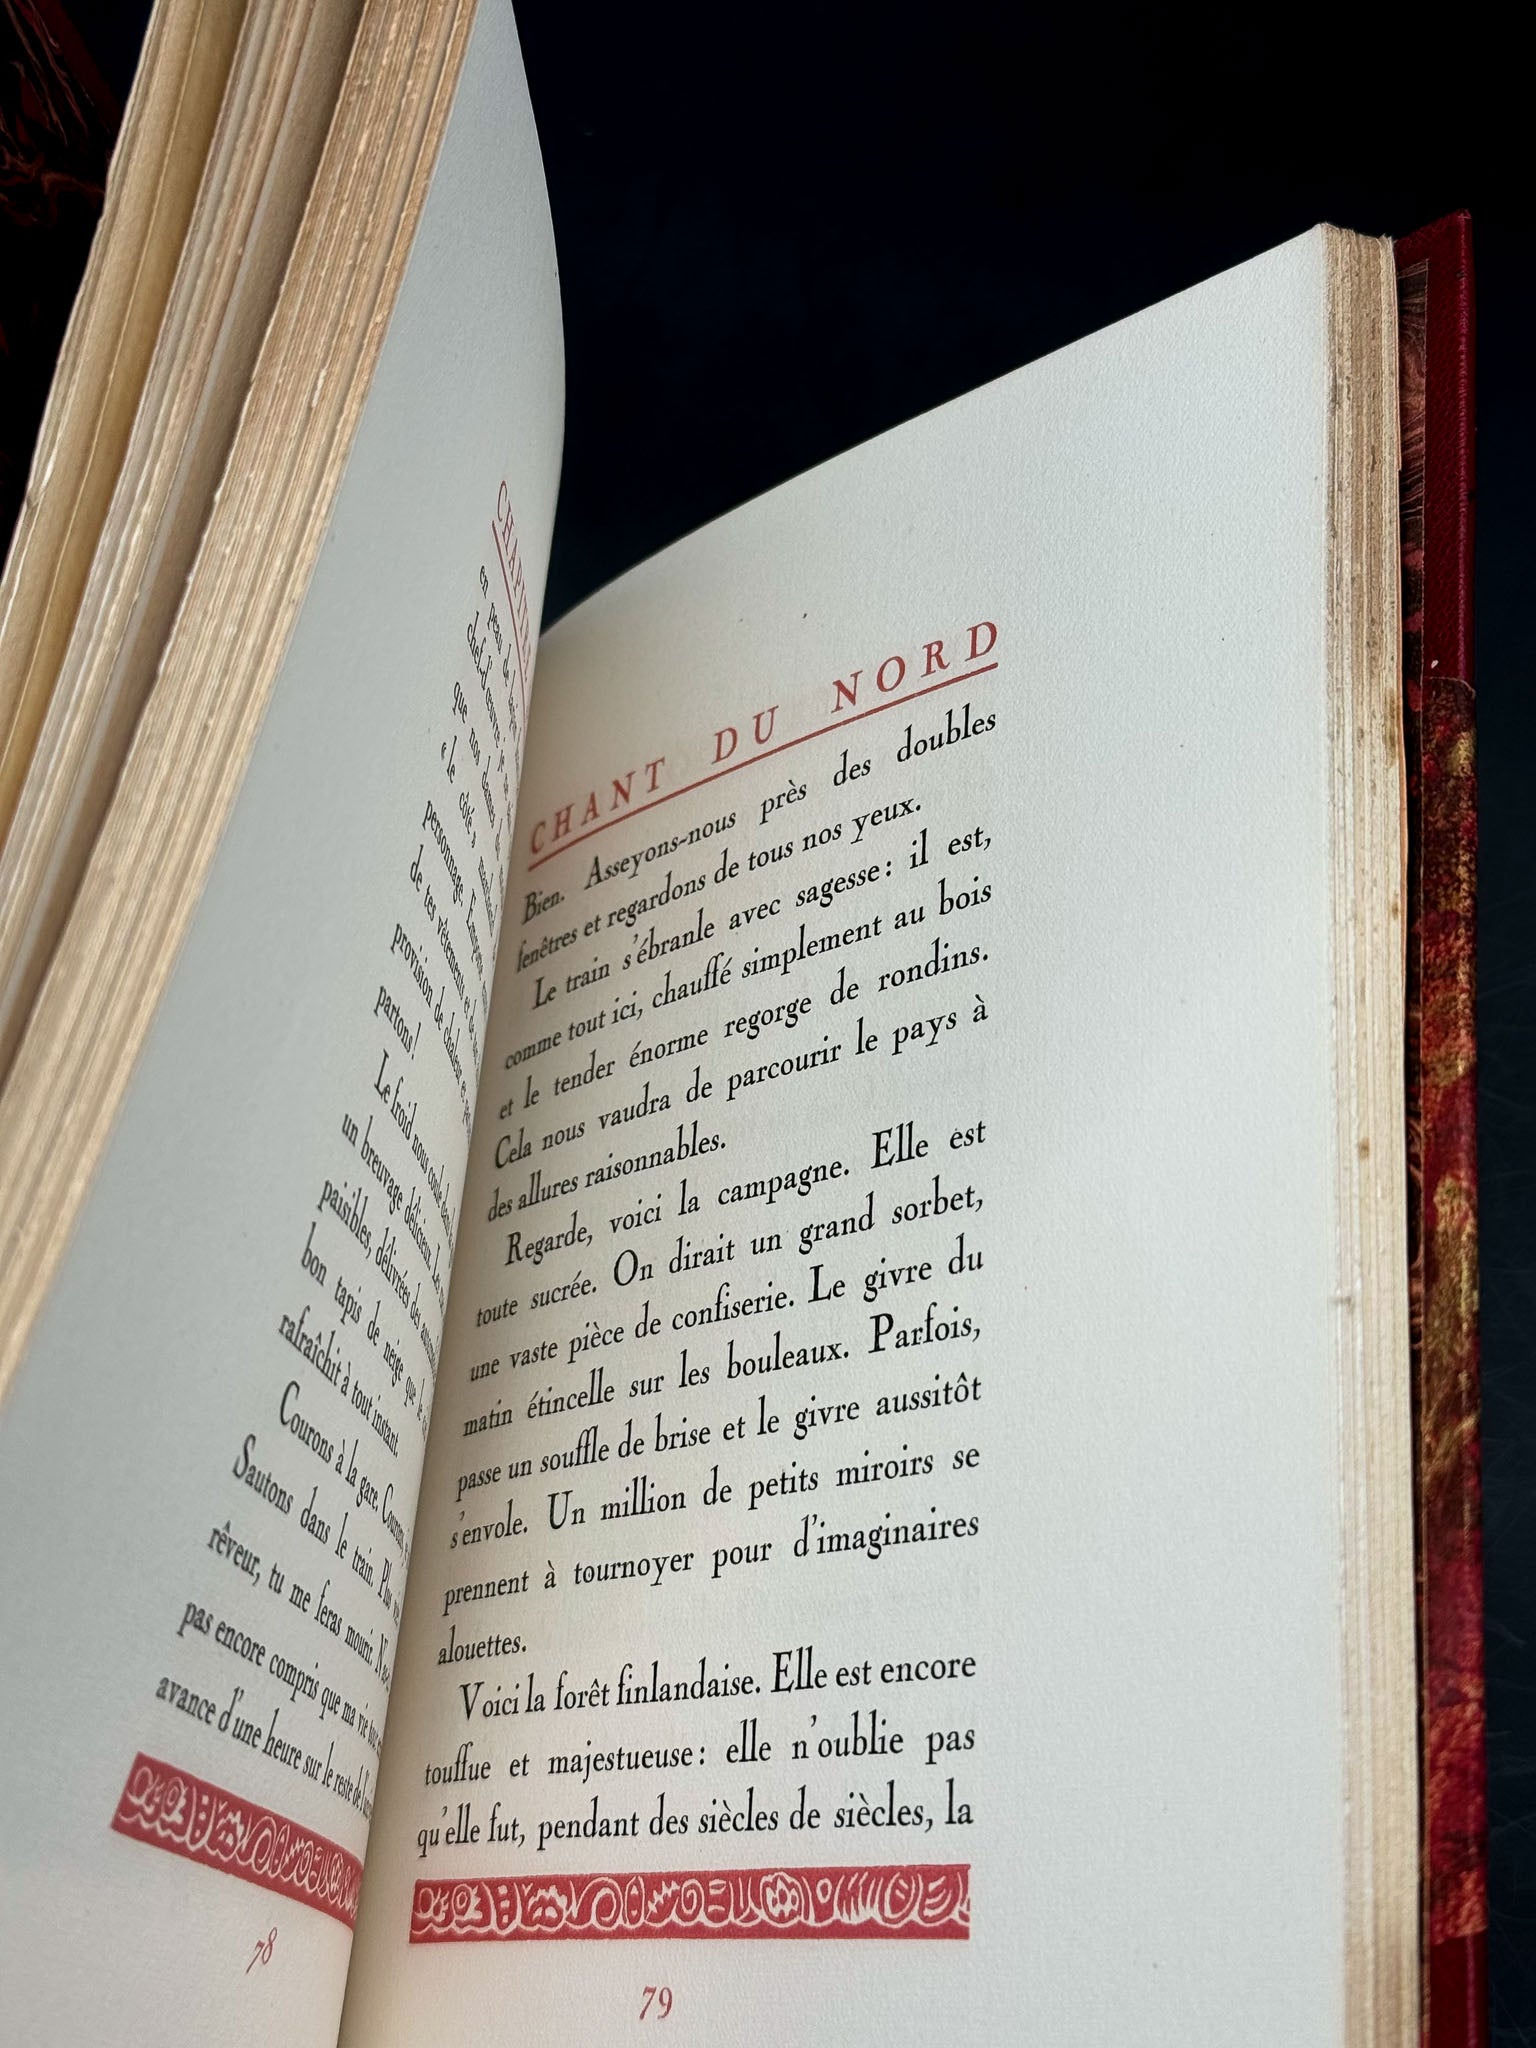 en peau de
que nos dames
« le côté »
personnage.
de tes vêtements et
provision de chaleur et
partons!
Le froid nous coule dans
un breuvage délicieux. Les
paisibles, délivrées des
bon tapis de neige que le
rafraîchit à tout instant.
Courons à la gare. Courons,
Sautons dans le train. Plus
rêveur, tu me feras mourir.
pas encore compris que ma vie
avance d'une heure sur le reste de
78
CHANT DU NORD
Bien. Asseyons-nous près des doubles
fenêtres et regardons de tous nos yeux.
Le train s'ébranle avec sagesse: il est,
comme tout ici, chauffé simplement au bois
et le tender énorme regorge de rondins.
Cela nous vaudra de parcourir le pays à
des allures raisonnables.
Regarde, voici la campagne. Elle est
toute sucrée. On dirait un grand sorbet,
une vaste pièce de confiserie. Le givre du
matin étincelle sur les bouleaux. Parfois,
passe un souffle de brise et le givre aussitôt
s'envole. Un million de petits miroirs se
prennent à tournoyer pour d'imaginaires
alouettes.
Voici la forêt finlandaise. Elle est encore
touffue et majestueuse: elle n'oublie pas
qu'elle fut, pendant des siècles de siècles, la
79